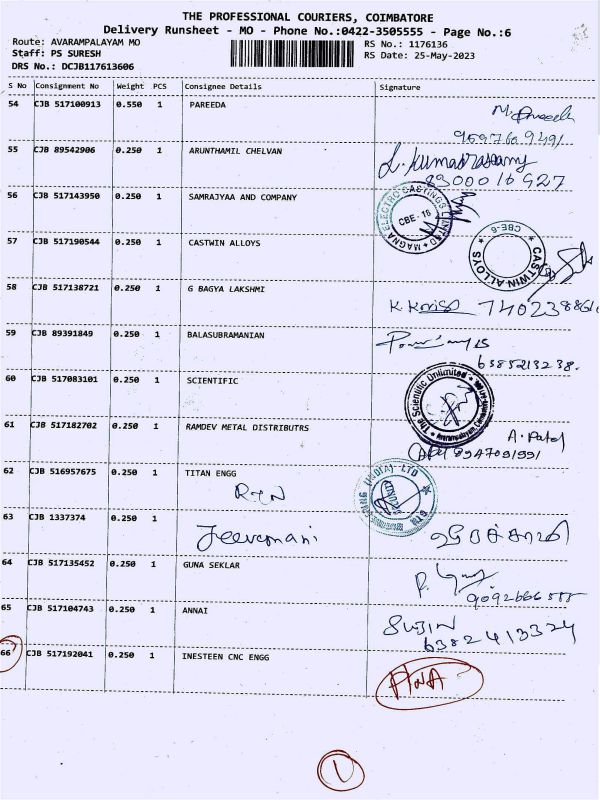 THE PROFESSIONAL COURIERS, COIMBATORE
Delivery Runsheet - MO - Phone No.:0422-3505555 - Page No.:6
Route: AVARAMPALAYAM MO RS No.: 1176136
Staff: PS SURESH RS Date: 25-May-2023
DRS No.: DCJB117613606
S No Consignment No Weight PCS Consignee Details Signature
54 CJB 517100913 0.550 1 PAREEDA
55 CJB 89542906 0.250 1 ARUNTHAMIL CHELVAN
L. Kumarasamy
56 CJB 517143950 0.250 1 SAMRAJYAA AND COMPANY
MAGNA ELECTRO CASTINGS LIMITED
CBE - 18
57 CJB 517190544 0.250 1 CASTWIN ALLOYS
CBE-6
CASTWIN ALLOYS
58 CJB 517138721 0.250 1 G BAGYA LAKSHMI
59 CJB 89391849 0.250 1 BALASUBRAMANIAN
6385213238.
60 CJB 517083101 0.250 1 SCIENTIFIC
The Scientific Unlimited
61 CJB 517182702 0.250 1 RAMDEV METAL DISTRIBUTRS
A. Patel
8947091991
62 CJB 516957675 0.250 1 TITAN ENGG
(INDIA) LTD
63 CJB 1337374 0.250 1
Jeevamani
64 CJB 517135452 0.250 1 GUNA SEKLAR
65 CJB 517104743 0.250 1 ANNAI
SUJIN
6382413324
66 CJB 517192041 0.250 1 INESTEEN CNC ENGG